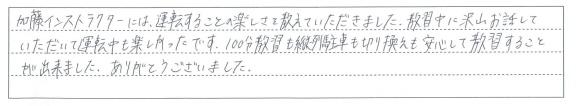 加藤インストラクターには、運転することの楽しさを教えていただきました。教習中に沢山お話して
いただいて運転中も楽しかったです。100分教習も縦列駐車も切り換えも安心して教習すること
が出来ました。ありがとうございました。